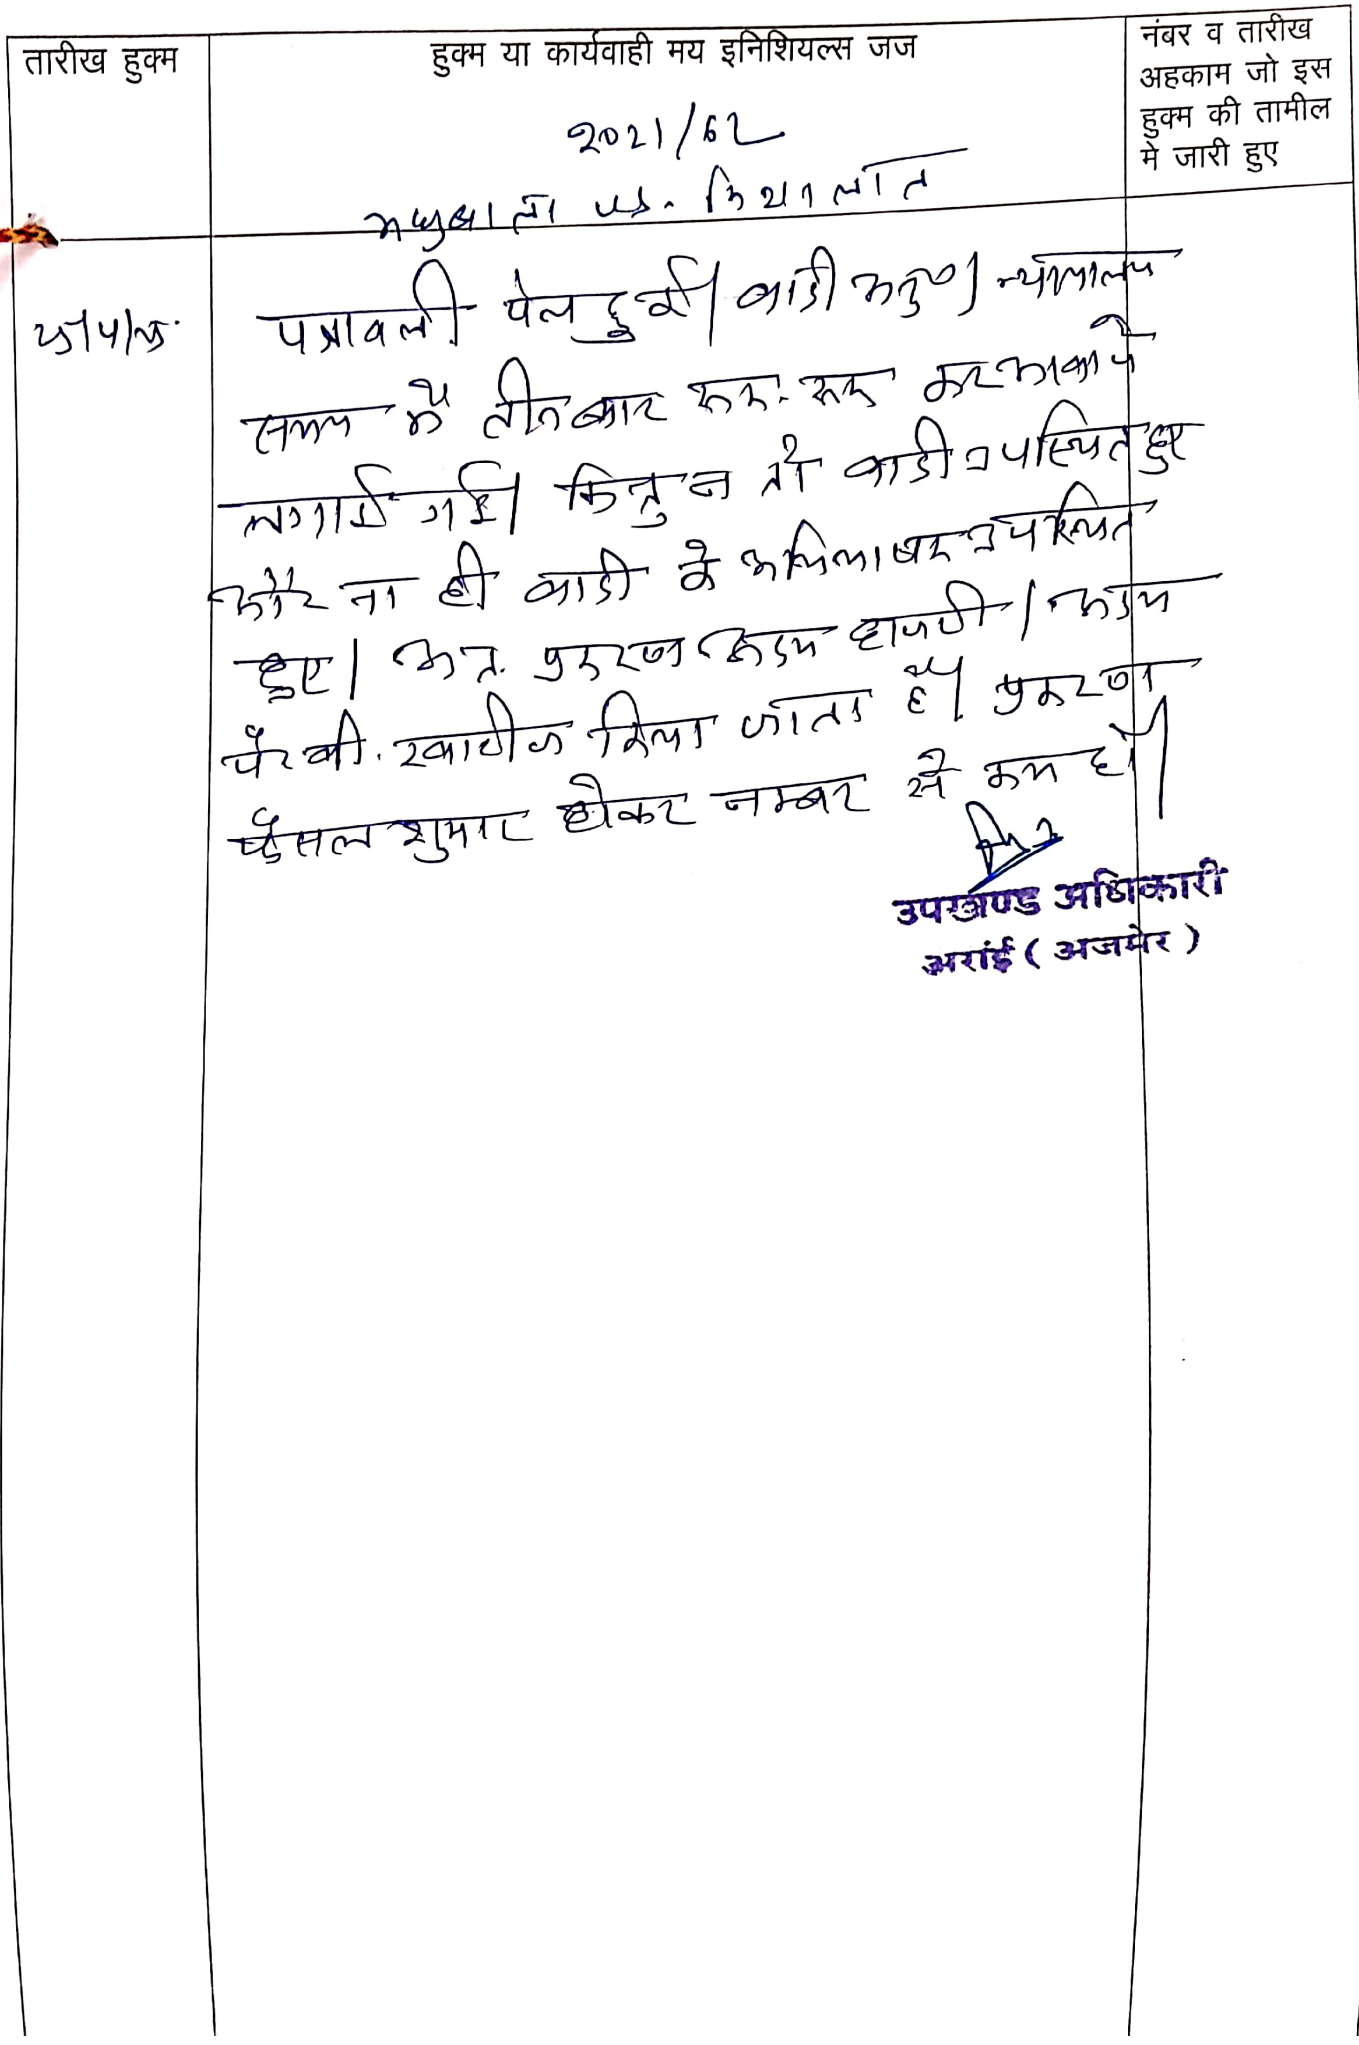 तारीख हुक्म
हुक्म या कार्यवाही मय इनिशियल्स जज
नंबर व तारीख
अहकाम जो इस
हुक्म की तामील
मे जारी हुए
2021/62
पत्रावली पेश हुई। वादी अनु०। न्यायालय
समय में तीन बार रूक-रूक कर आवाजे
लगाई गई। किन्तु न तो वादी उपस्थित हुए
और ना ही वादी के अभिभाषक उपस्थित
हुए। अतः प्रकरण अदम हाजरी/अदम
पैरवी खारीज किया जाता है। प्रकरण
फैसल शुमार होकर नम्बर से कम हो।
उपखण्ड अधिकारी
अरांई ( अजमेर )